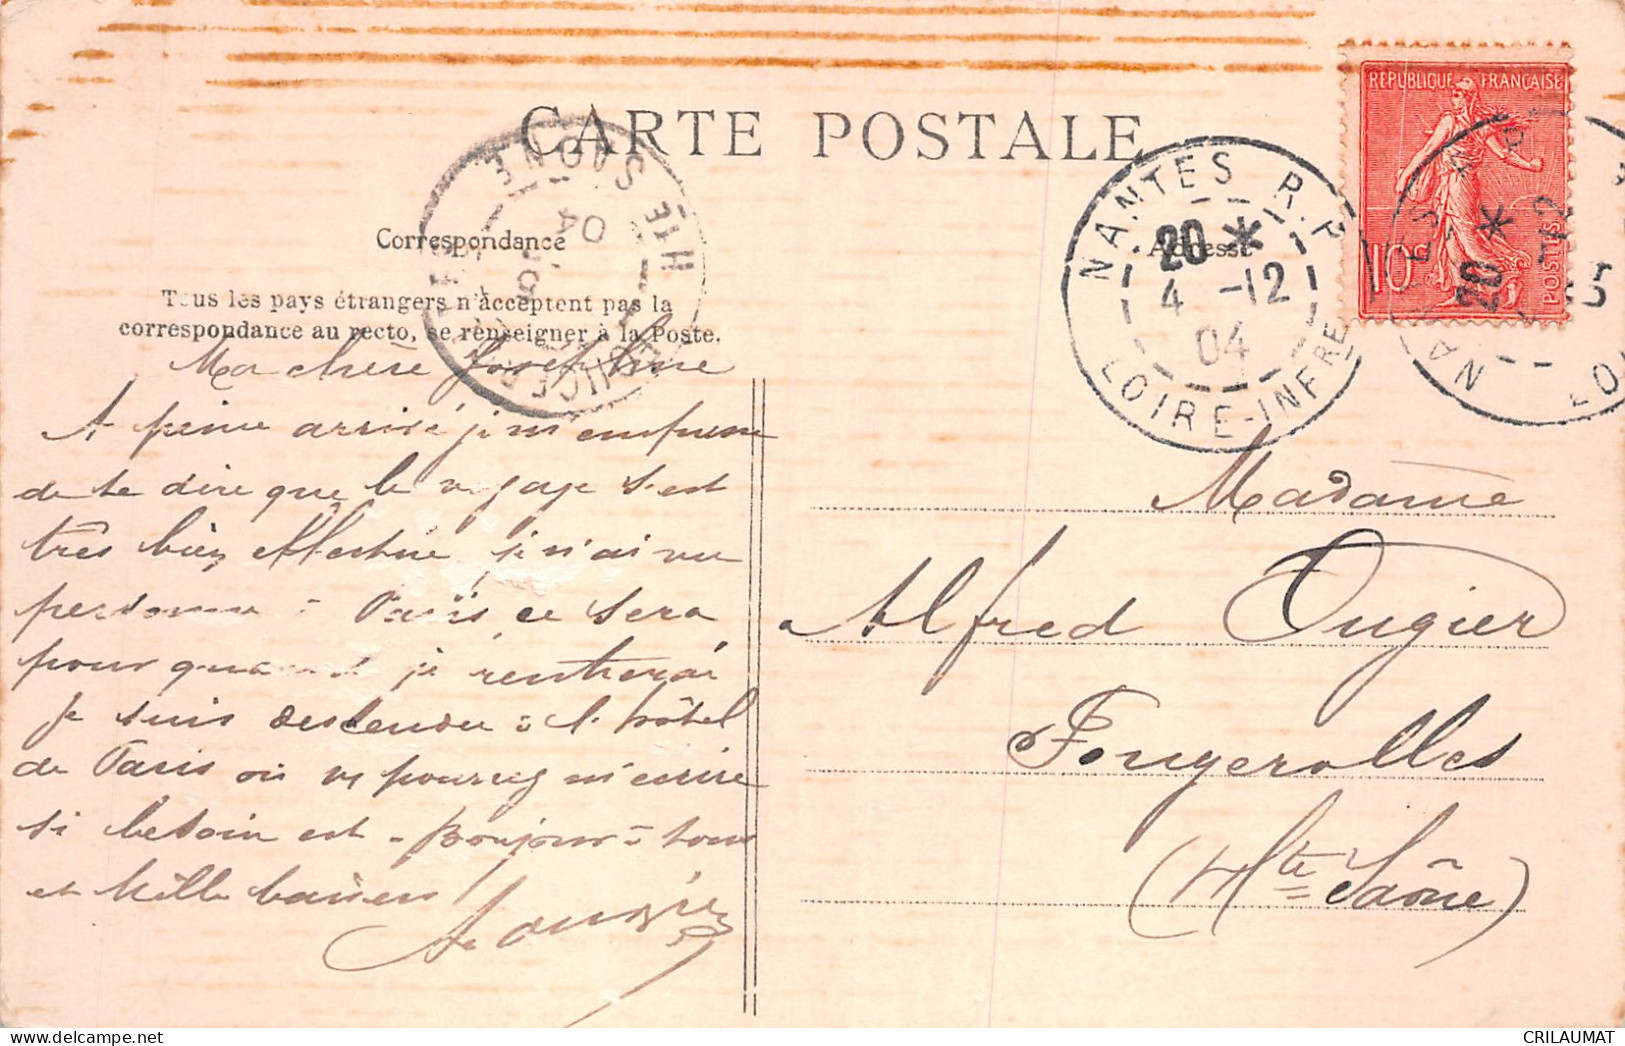 CARTE POSTALE
Correspondance
Adresse
Tous les pays étrangers n'acceptent pas la
correspondance au recto, se renseigner à la Poste.
RÉPUBLIQUE FRANÇAISE
10c
POSTES
NANTES R.P.
20 *
4 -12
04
LOIRE-INFRE
HTE SAONE
04
Ma chère Joséphine
A peine arrivé je m'empresse
de te dire que le voyage s'est
très bien effectué, je n'ai vu
personne à Paris ce sera
pour quand je rentrerai
Je suis descendu à l'hôtel
de Paris où vs pourrez m'écrire
si besoin est. Bonjour à tous
et mille baisers
Madame
Alfred Ougier
Fougerolles
(Hte Saône)
CRILAUMAT